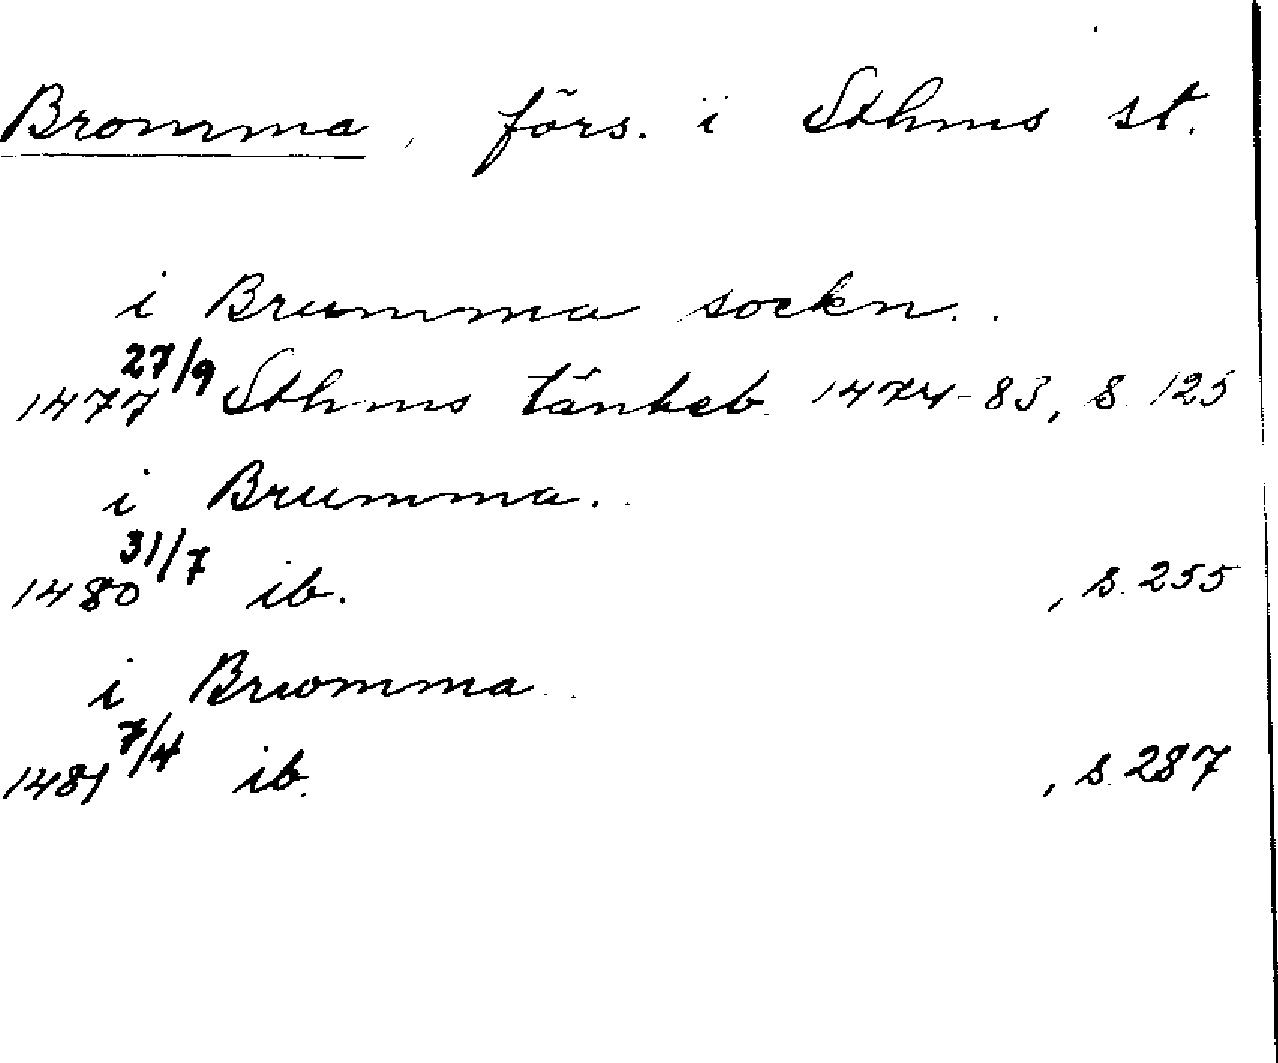 Bromma, förs. i Sthms st.
i Brumma sockn..
1477 27/9 Sthms tänkeb. 1474-83, s. 125
i Brumma..
1480 31/7 ib. , s. 255
i Bruomma..
1481 7/4 ib. , s. 287